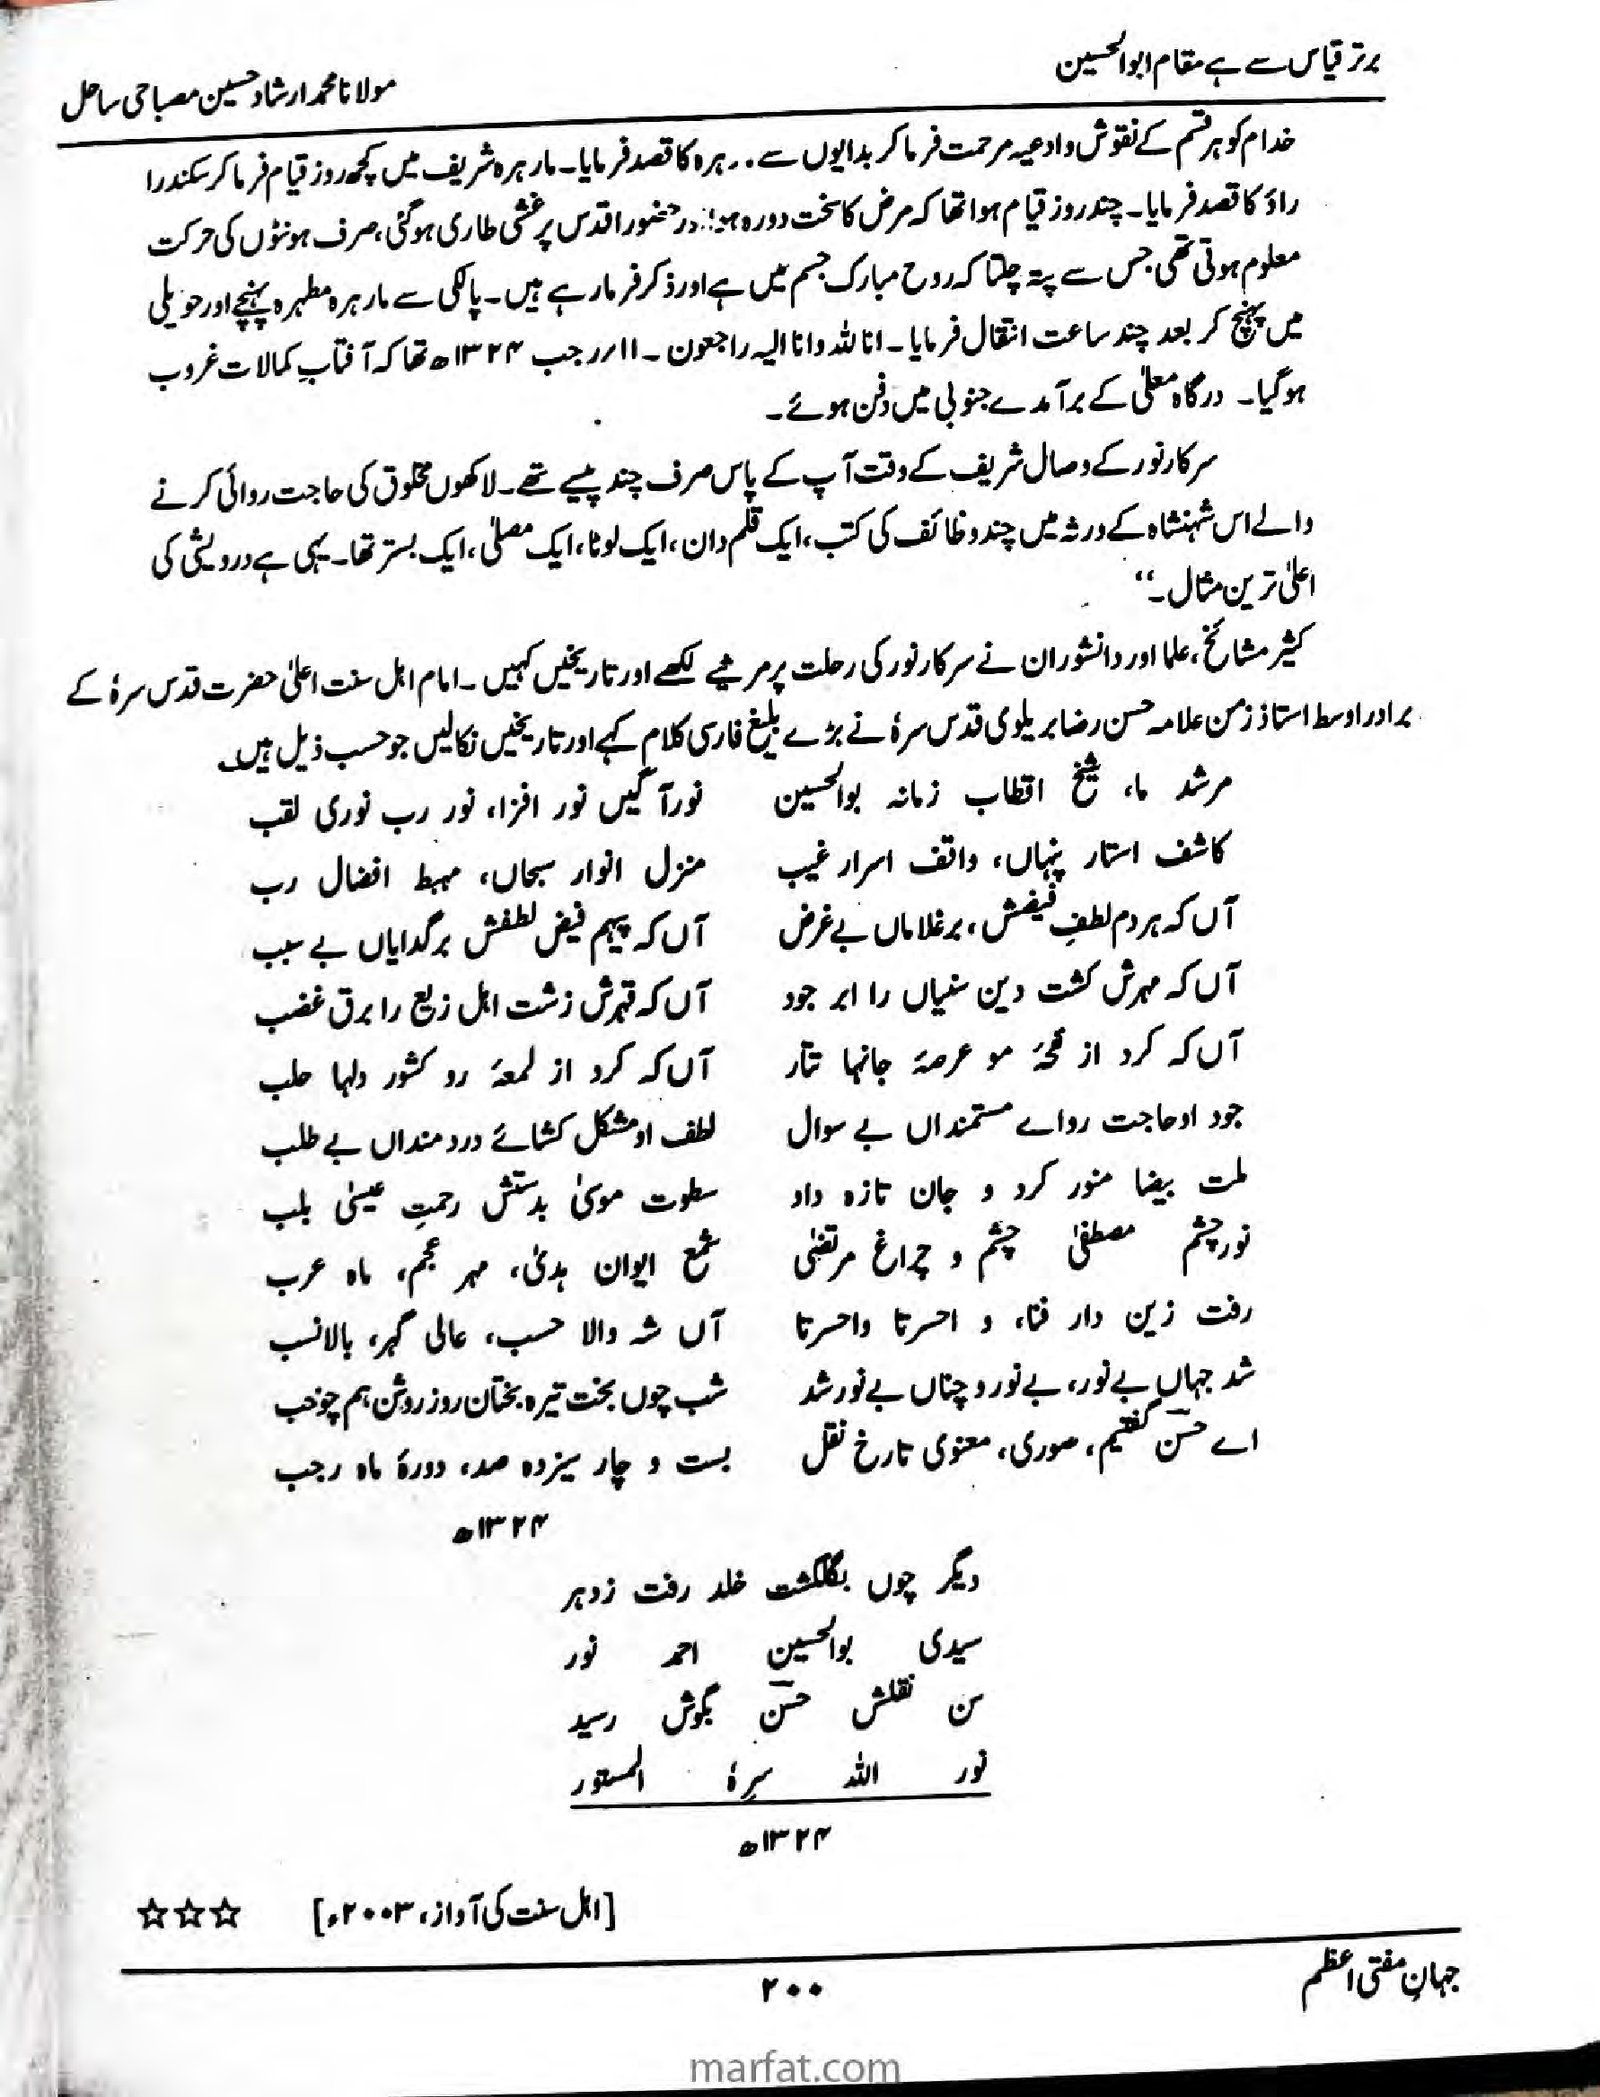 برتر قیاس سے ہے مقام ابوالحسین
مولانا محمد ارشاد حسین مصباحی ساحل
خدام کو ہر قسم کے نقوش و ادعیہ مرحمت فرما کر بدایوں سے ..رہرہ کا قصد فرمایا۔ مارہرہ شریف میں کچھ روز قیام فرما کر سکندرا
راؤ کا قصد فرمایا۔ چند روز قیام ہوا تھا کہ مرض کا سخت دورہ ہوا حضور اقدس پر غشی طاری ہوگئی، صرف ہونٹوں کی حرکت
معلوم ہوتی تھی جس سے پتہ چلتا کہ روح مبارک جسم میں ہے اور ذکر فرما رہے ہیں۔ پالکی سے مارہرہ مطہرہ پہنچے اور حویلی
میں پہنچ کر بعد چند ساعت انتقال فرمایا۔ انا للہ وانا الیہ راجعون ۔ ۱۱/رجب ۱۳۲۴ھ تھا کہ آفتابِ کمالات غروب
ہوگیا۔ درگاہ معلیٰ کے برآمدے جنوبی میں دفن ہوئے۔
سرکار نور کے وصال شریف کے وقت آپ کے پاس صرف چند پیسے تھے۔ لاکھوں مخلوق کی حاجت روائی کرنے
والے اس شہنشاہ کے ورثہ میں چند وظائف کی کتب، ایک قلم دان، ایک لوٹا، ایک مصلیٰ، ایک بستر تھا۔ یہی ہے درویشی کی
اعلیٰ ترین مثال۔‘‘
کثیر مشائخ، علما اور دانشوران نے سرکار نور کی رحلت پر مرثیے لکھے اور تاریخیں کہیں۔ امام اہل سنت اعلیٰ حضرت قدس سرہٗ کے
برادر اوسط استاذ زمن علامہ حسن رضا بریلوی قدس سرہٗ نے بڑے بلیغ فارسی کلام کہے اور تاریخیں نکالیں جو حسب ذیل ہیں۔
مرشد ما، شیخ اقطاب زمانہ بوالحسین نور آگیں نور افزا، نور رب نوری لقب
کاشف استار پنہاں، واقف اسرار غیب منزل انوار سبحاں، مہبط افضال رب
آں کہ ہر دم لطفِ فیضش، بر غلاماں بے غرض آں کہ پیہم فیض لطفش بر گدایاں بے سبب
آں کہ مہرش کشت دین سنیاں را ابر جود آں کہ قہرش زشت اہل زیغ را برق غضب
آں کہ کرد از نفحۂ مو عرصۂ جانہا تتار آں کہ کرد از لمعۂ رو کشور دلہا حلب
جود او حاجت رواے مستمنداں بے سوال لطف او مشکل کشائے درد منداں بے طلب
ملت بیضا منور کرد و جان تازہ داد سطوت موسیٰ بدستش رحمتِ عیسیٰ بلب
نور چشم مصطفیٰ چشم و چراغ مرتضیٰ شمع ایوان ہدیٰ، مہر عجم، ماہ عرب
رفت زین دار فنا، و احسرتا واحسرتا آں شہ والا حسب، عالی گہر، بالا نسب
شد جہاں بے نور، بے نور و چناں بے نور شد شب چوں بخت تیرہ بختاں روز روشن ہم چو شب
اے حسنؔ گفتیم، صوری، معنوی تاریخ نقل بست و چار سیزدہ صد، دورۂ ماہ رجب
۱۳۲۴ھ
دیگر چوں بگلگشت خلد رفت ز دہر
سیدی بوالحسین احمد نور
سن نقلش حسنؔ بگوش رسید
نور اللہ سرہٗ المستور
۱۳۲۴ھ
[اہل سنت کی آواز، ۲۰۰۳ء] ☆☆☆
جہانِ مفتی اعظم
۲۰۰
marfat.com